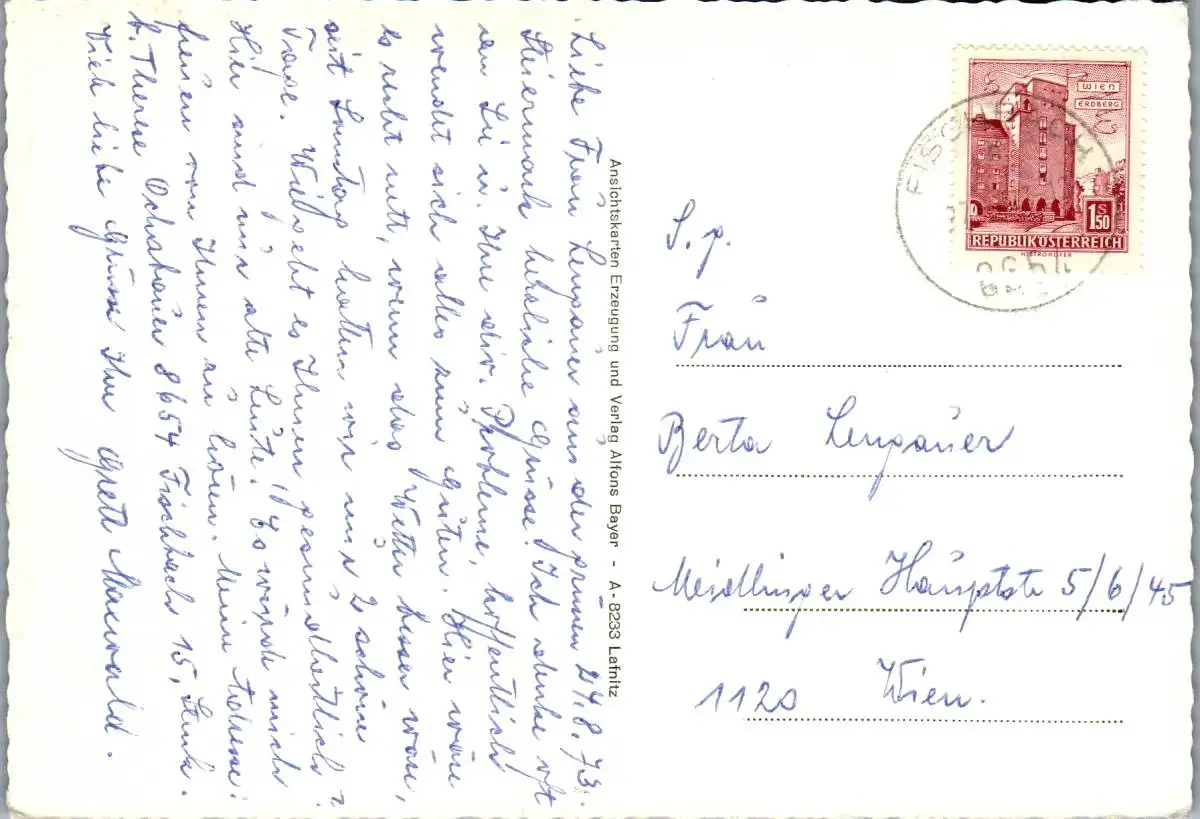 24.8.73.
Liebe Frau Lengauer aus der grünen
Steiermark herzliche Grüsse. Ich denke oft
an Sie u. Ihre div. Probleme, hoffentlich
wendet sich alles zum Guten. Hier wäre
es recht nett, wenn das Wetter besser wäre,
seit Sonntag hatten wir nur 2 schöne
Tage. Wie geht es Ihnen gesundheitlich?
Hier sind nur alte Leute! Es würde mich
freuen von Ihnen zu hören. Meine Adresse:
b. Therese 8654 Fischbach 15, Steierm.
Viele liebe Grüsse Ihre Grete
Ansichtskarten Erzeugung und Verlag Alfons Bayer - A-8233 Lafnitz
WIEN
ERDBERG
1 S 50
REPUBLIK ÖSTERREICH
FISCHBACH
8654
S. g.
Frau
Berta Lengauer
Meidlinger Hauptstr 5/6/45
1120 Wien.